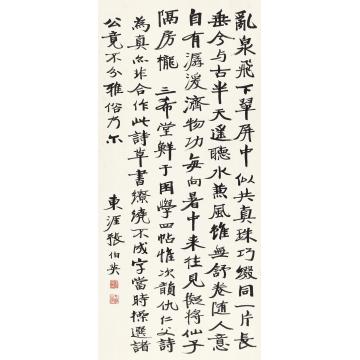 亂泉飛下翠屏中似共真珠巧綴同一片長
垂今与古半天遥聽水兼風雖無舒卷随人意
自有潺湲濟物功每向暑中來往見擬將仙子
隔房櫳三希堂鮮于困學四帖惟次韻仇仁父詩
為真餘非合作此詩草書繚繞不成字當時標選諸
公竟不分雅俗乃尔
東涯張伯英